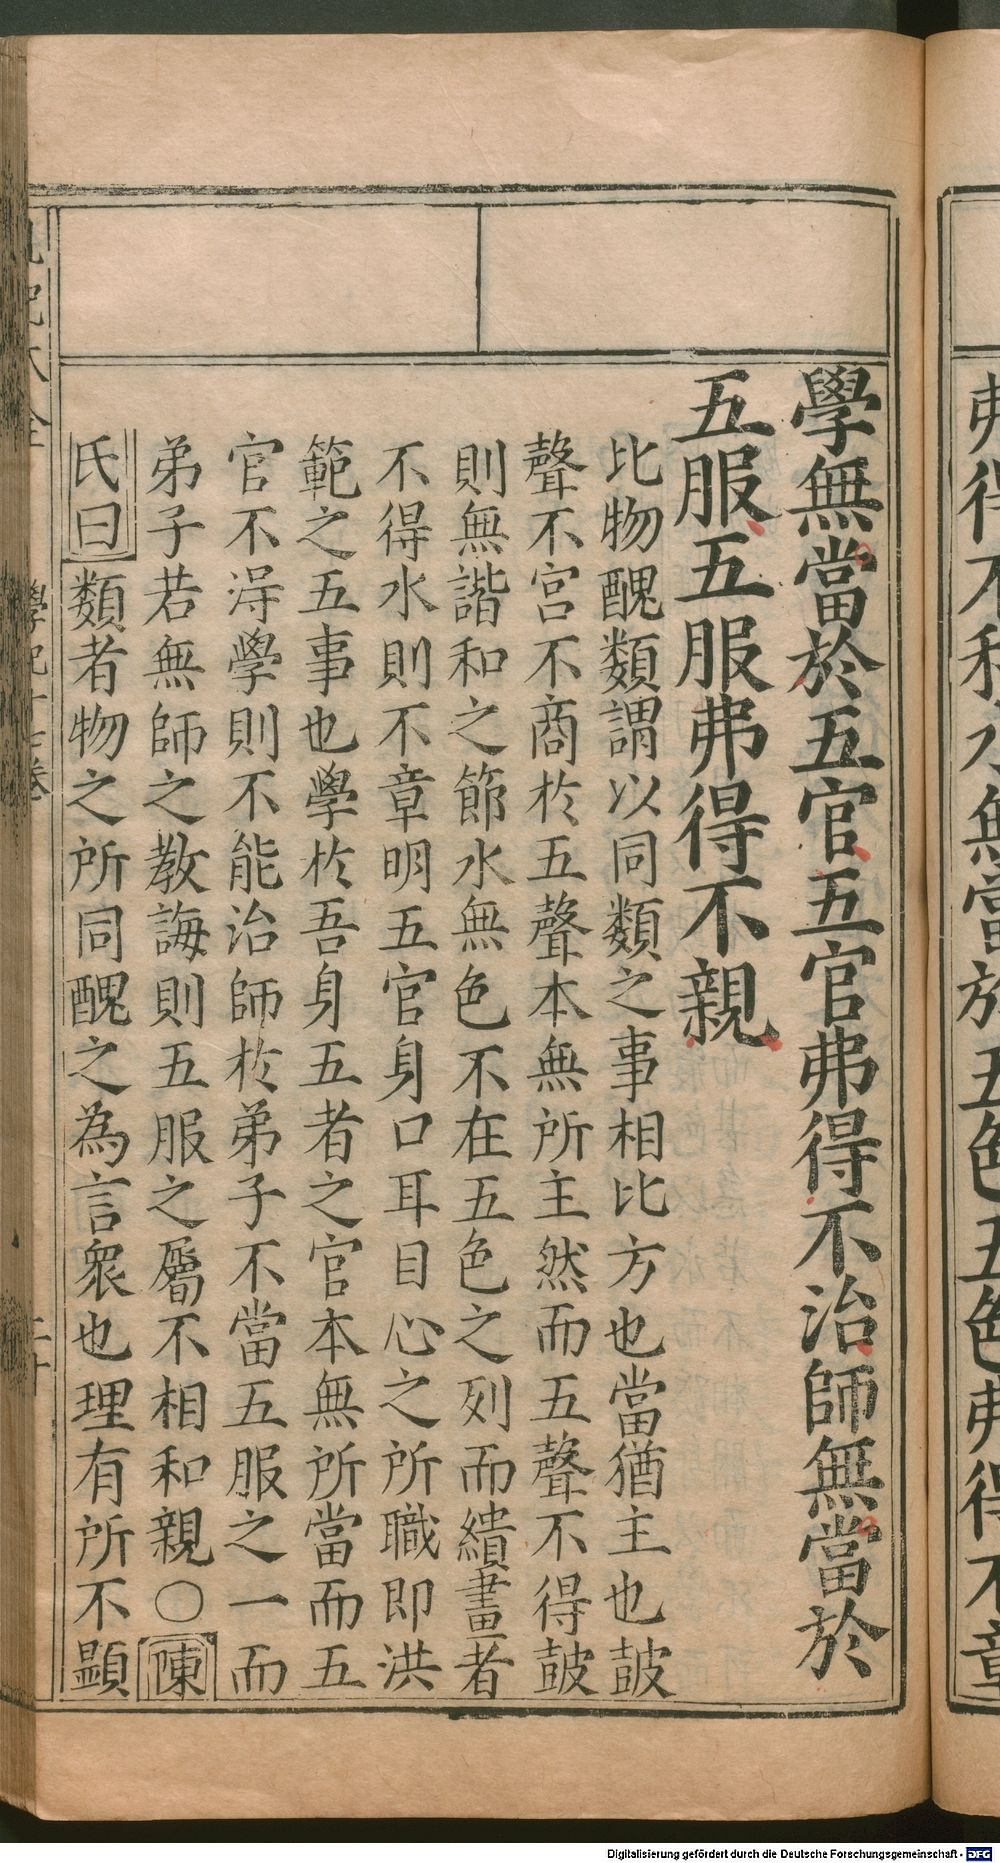 弗得不和水無當於五色五色弗得不章
學無當於五官五官弗得不治師無當於
五服五服弗得不親
比物醜類謂以同類之事相比方也當猶主也皷
聲不宮不商於五聲本無所主然而五聲不得皷
則無諧和之節水無色不在五色之列而繢畫者
不得水則不章明五官身口耳目心之所職即洪
範之五事也學於吾身五者之官本無所當而五
官不淂學則不能治師於弟子不當五服之一而
弟子若無師之教誨則五服之屬不相和親〇陳
氏曰類者物之所同醜之為言衆也理有所不顯
學記十七卷
二十
Digitalisierung gefördert durch die Deutsche Forschungsgemeinschaft - DFG